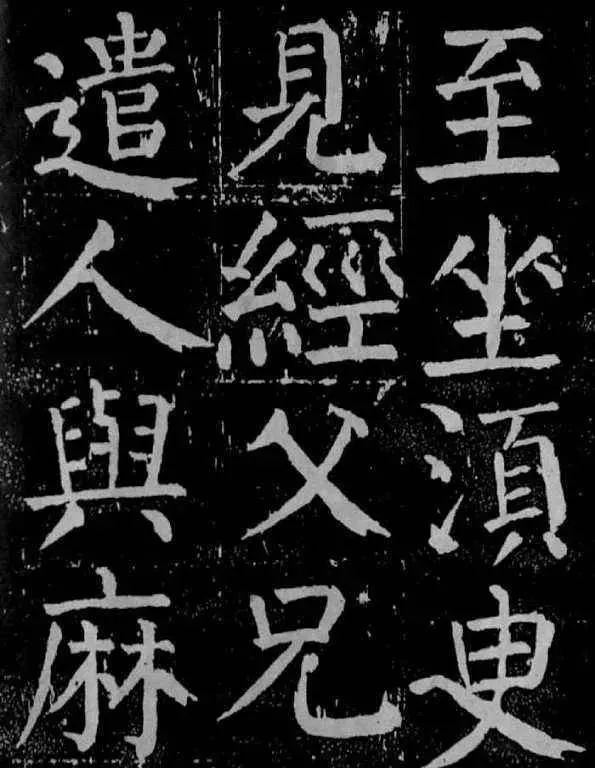 至坐須叟
見經父兄
遣人與麻